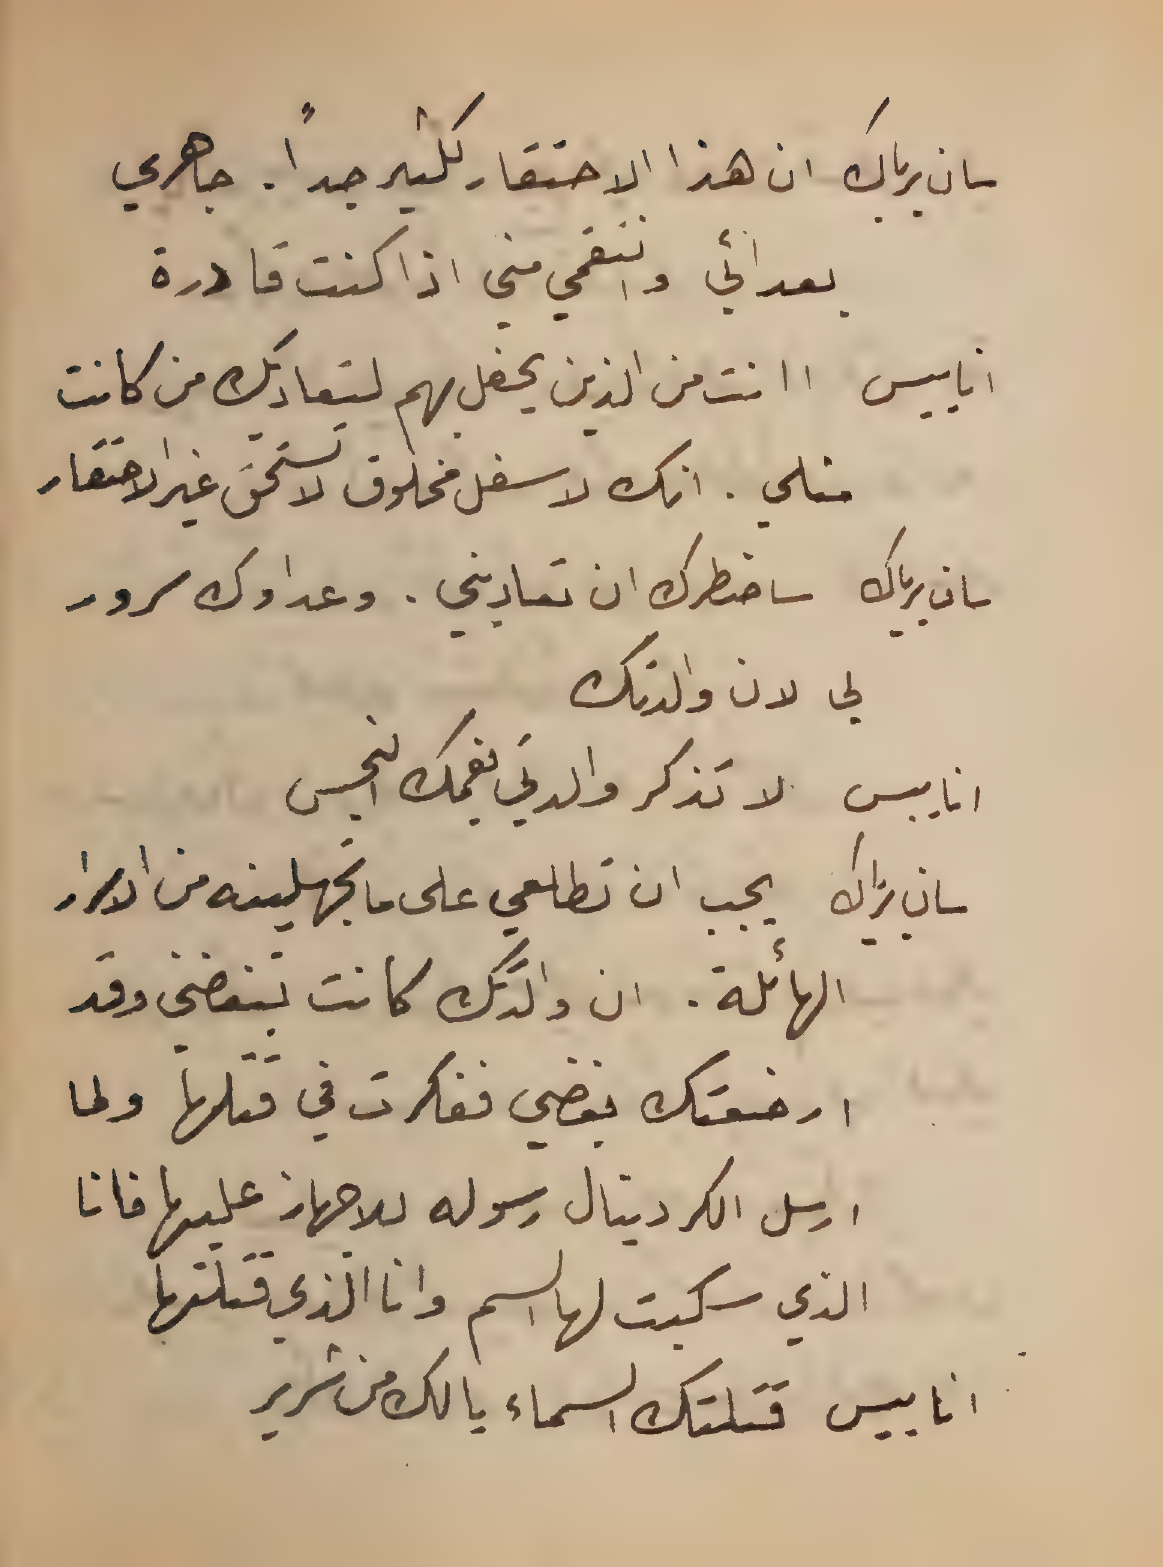 سان برياك ان هذا الاحتقار لكثير جداً. جاهري
بعدائي وانتقمي مني اذا كنت قادرة
اناييس اانت من الذين يحفل بهم لتعاديك من كانت
مثلي. انك لاسفل مخلوق لا تستحق غير الاحتقار
سان برياك ساضطرك ان تعاديني. وعداوك سرور
لي لان والدتك
اناييس لا تذكر والدتي بفمك النجس
سان برياك يجب ان تطلعي على ما تجهلينه من الاسرار
الهائلة. ان والدتك كانت تبغضني وقد
ارضعتك بغضي ففكرت في قتلها ولما
ارسل الكردينال رسوله للاجهاز عليها فانا
الذي سكبت لها السم وانا الذي قتلتها
اناييس قتلتك السماء يا لك من شرير